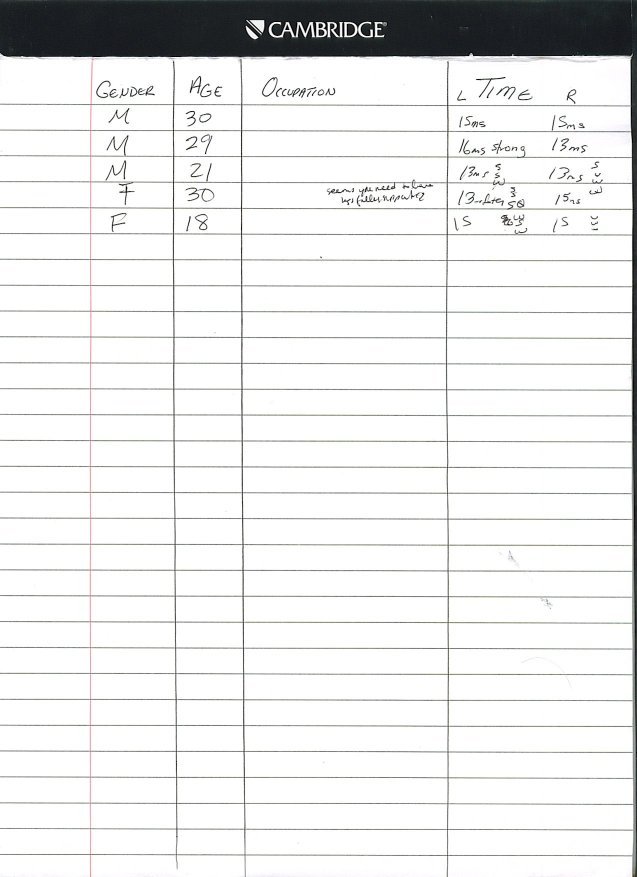 CAMBRIDGE
GENDER AGE OCCUPATION L TIME R
M 30 15ms 15ms
M 29 16ms strong 13ms
M 21 13ms 13ms
F 30 seems you need to have 13 15ms
legs fully supported
F 18 15 15